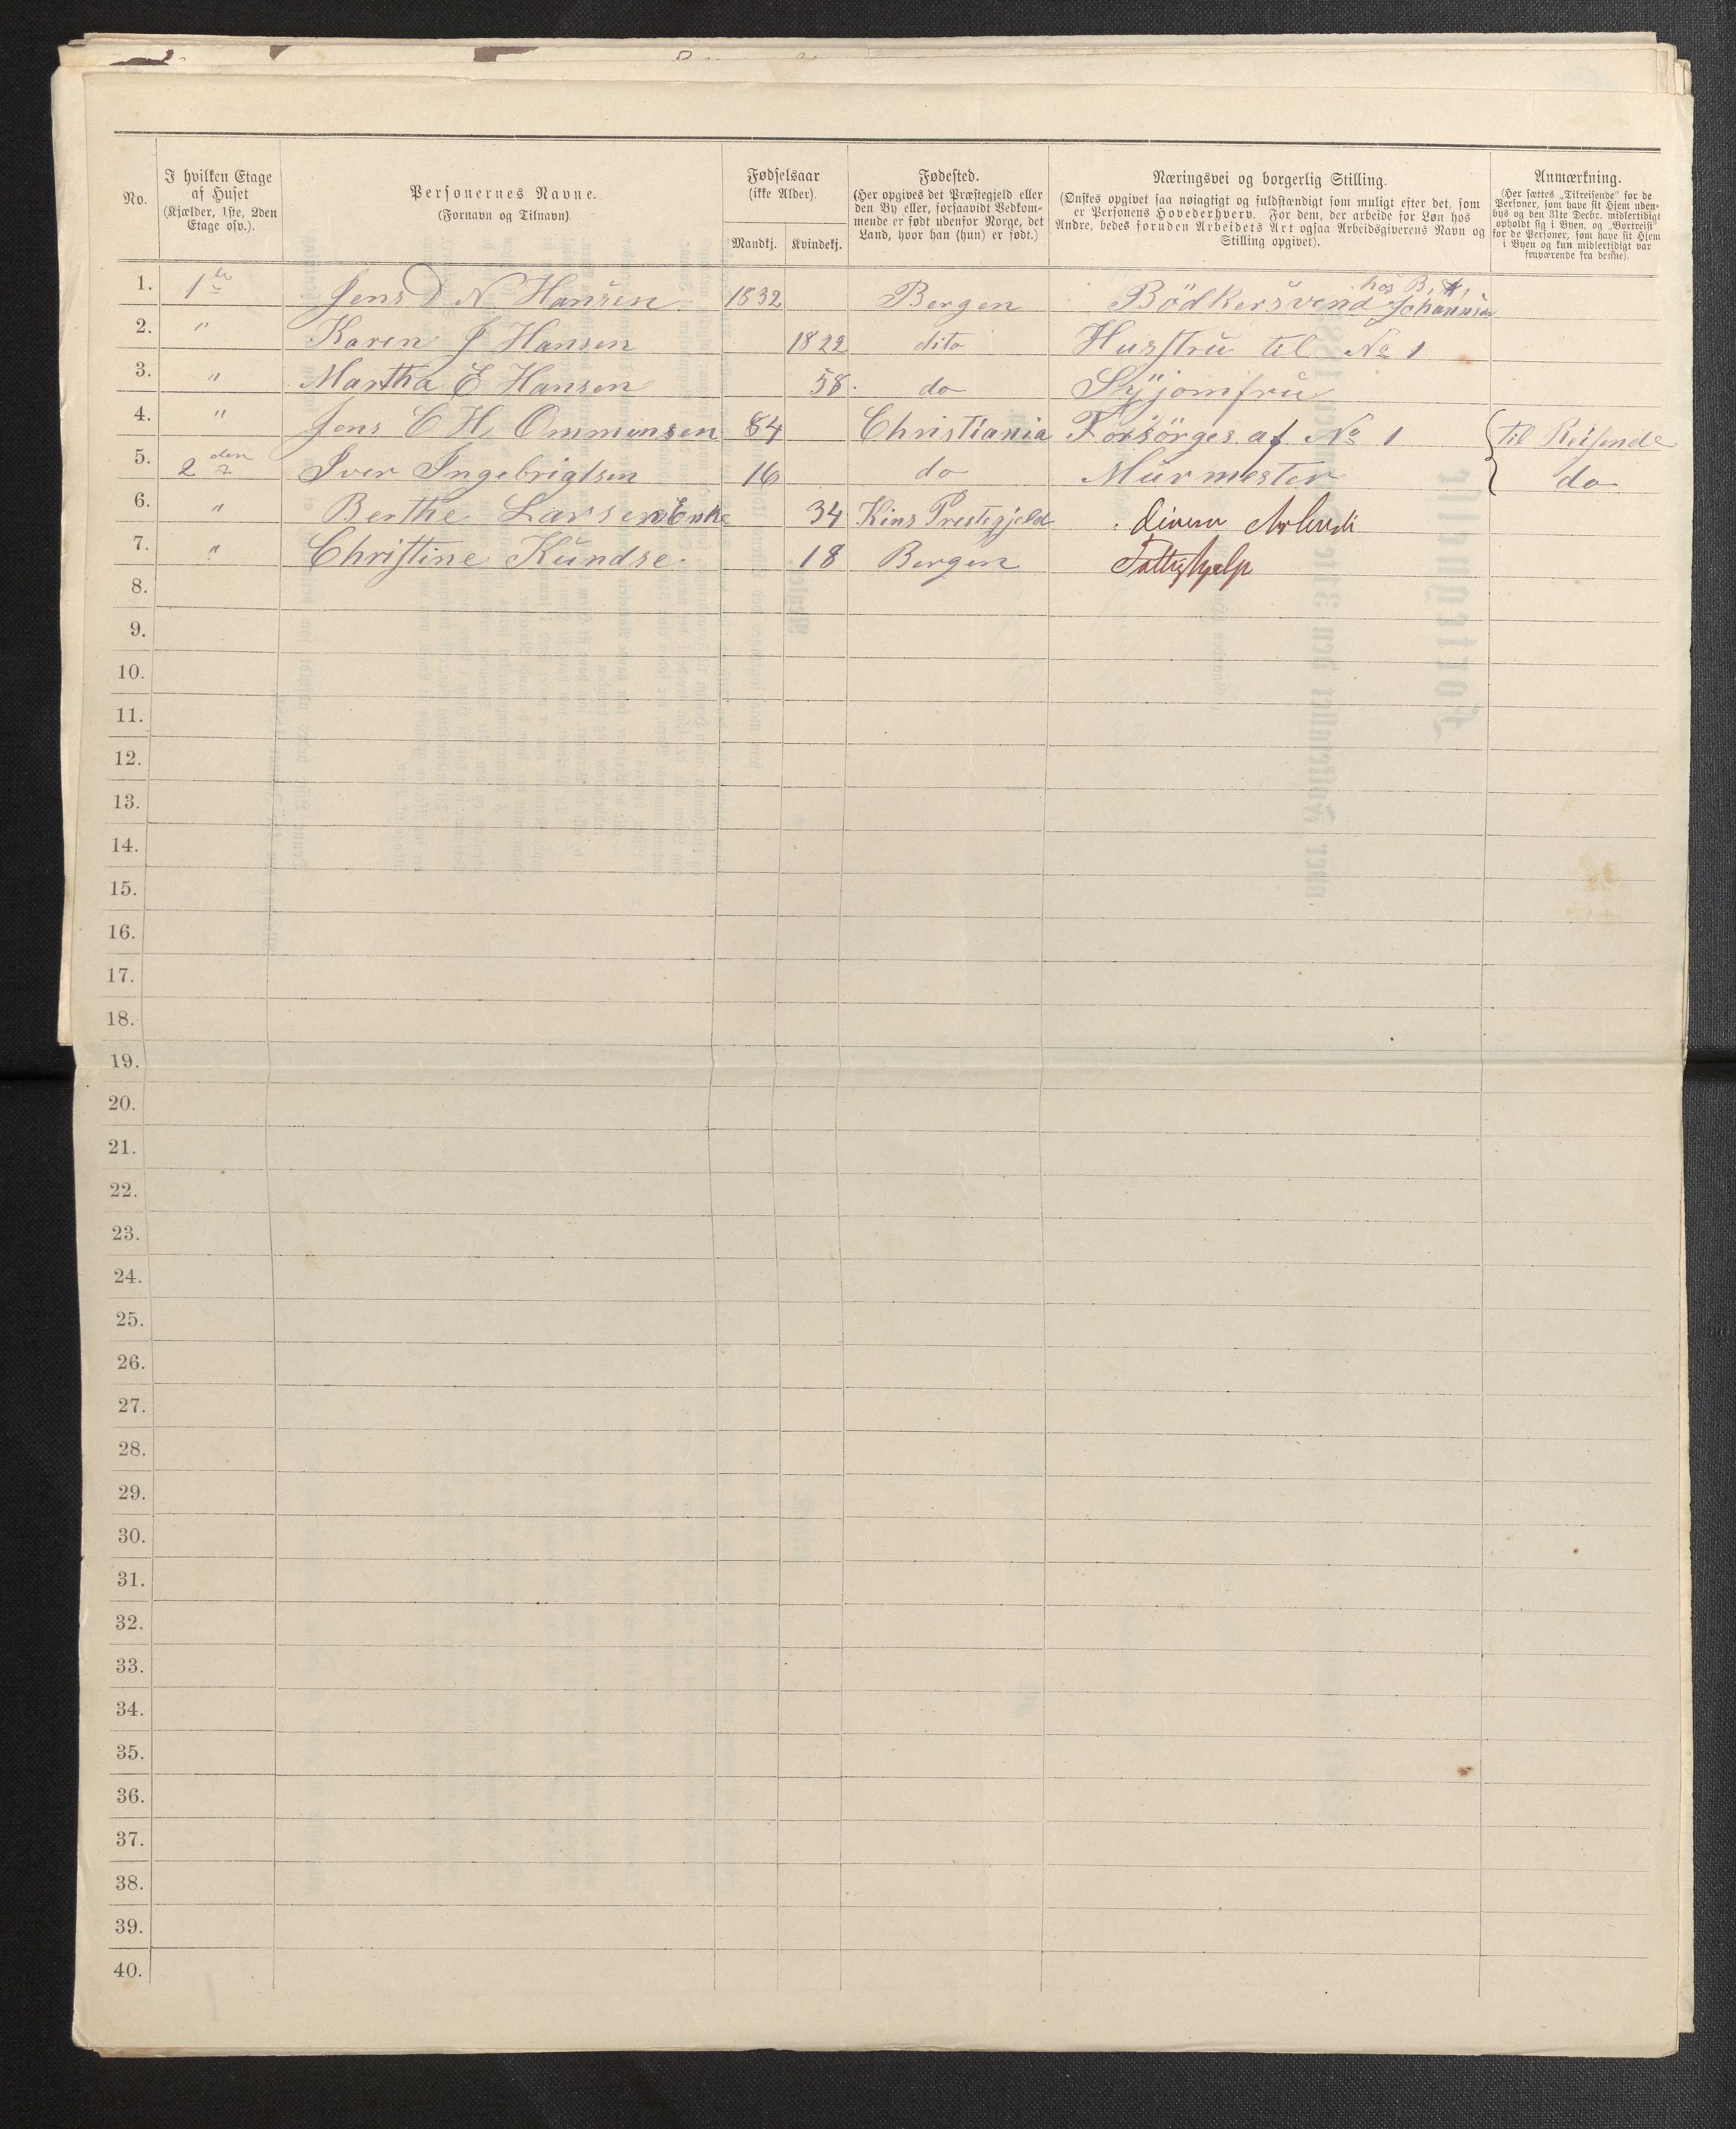 No.
I hvilken Etage af Huset (Kjælder, 1ste, 2den Etage osv.).
Personernes Navne. (Fornavn og Tilnavn).
Fødselsaar (ikke Alder).
Mandkj. Kvindekj.
Fødested. (Her opgives det Præstegjeld eller den By eller, forsaavidt Vedkommende er født udenfor Norge, det Land, hvor han (hun) er født.)
Næringsvei og borgerlig Stilling. (Ønskes opgivet saa nøiagtigt og fuldstændigt som muligt efter det, som er Personens Hovederhverv. For dem, der arbeide for Løn hos Andre, bedes foruden Arbeidets Art ogsaa Arbeidsgiverens Navn og Stilling opgivet).
Anmærkning. (Her sættes „Tilreisende" for de Personer, som have sit Hjem udenbys og den 31te Decbr. midlertidigt opholdt sig i Byen, og „Bortreist" for de Personer, som have sit Hjem i Byen og kun midlertidigt var fraværende fra denne).
1. 1te Jens D N Hansen 1832 Bergen Bödkersvend hos B.
2. " Karen J Hansen 1822 dito Husstru til No 1
3. " Martha E Hansen 58. do Syjomfru
4. " Jens C H Ommunsen 84 Christiania Forsörges af No 1 til Reisende
5. 2den Iver Ingebrigtsen 16 do Murmester do
6. " Berthe Larsen Enke 34 Kins Prestegjeld
7. " Christine Kundse. 18 Bergen Fattighjelp
8.
9.
10.
11.
12.
13.
14.
15.
16.
17.
18.
19.
20.
21.
22.
23.
24.
25.
26.
27.
28.
29.
30.
31.
32.
33.
34.
35.
36.
37.
38.
39.
40.